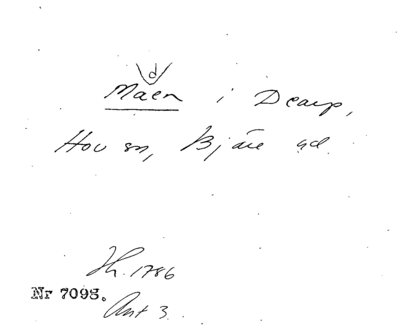 d
Maen i Dearp,
Hov sn, Bjäre hd.
1786
Nr 7098.
Ant 3.